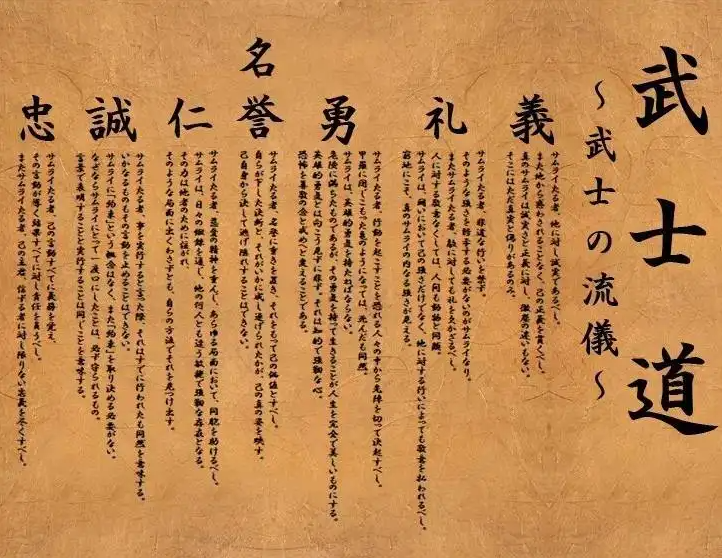 武士道
〜武士の流儀〜
義
サムライたる者、他に対し誠実であるべし。
また他から惑わされることなく、己の正義を貫くべし。
真のサムライは誠実さと正義に対し、微塵の迷いもない。
そこにはただ真実と偽りがあるのみ。
礼
サムライたる者、非道な行いを禁ず。
そのような強さを誇示する必要がないのがサムライなり。
またサムライたる者、敵に対しても礼を欠かざるべし。
人に対する敬意なくしては、人間も動物と同然。
サムライは、闘いにおいて己の強さだけでなく、他に対する行いによっても敬意を払われるべし。
窮地にこそ、真のサムライの内なる強さが見える。
勇
サムライたる者、行動を起こすことを恐れる人々の中から危険を切って決起すべし。
甲羅に閉じこもった亀のようになっては、死んだも同然。
サムライは、英雄的勇気を持たねばならない。
危険に満ちたものであるが、その勇気を持って生きることが人生を完全で美しいものにする。
英雄的勇気とは向こう見ずに非ず。それは知的で強靭な心。
恐怖を尊敬の念と戒めへと変えることである。
名誉
サムライたる者、名誉に重きを置き、それをもって己の価値とすべし。
自らが下した決断と、それがいかに成し遂げられたかが、己の真の姿を映す。
己自身から決して逃げ隠れすることはできない。
仁
サムライたる者、慈愛の精神を重んじ、あらゆる局面において、同胞を助けるべし。
サムライは、日々の鍛錬を通し、他の何人とも違う敏捷で強靭な存在となる。
その力は他者のために注がれ、
そのような局面に出くわさずとも、自らの方法でそれを見つけ出す。
誠
サムライたる者、事を実行すると言った際、それはすでに行われたも同然を意味する。
いかなるものもその言動を止めることはできない。
サムライに「約束」という概念はなく、また「約束」を取り決める必要がない。
なぜならサムライにとって一度口にしたことは、必ず守られるもの。
言葉で表明することと実行することは同じことを意味する。
忠
サムライたる者、己の言動すべてに義務を覚え、
その言動が導く結果すべてに対し責任を負うべし。
またサムライたる者、己の主君、信ずる者に対し限りない忠義を尽くすべし。